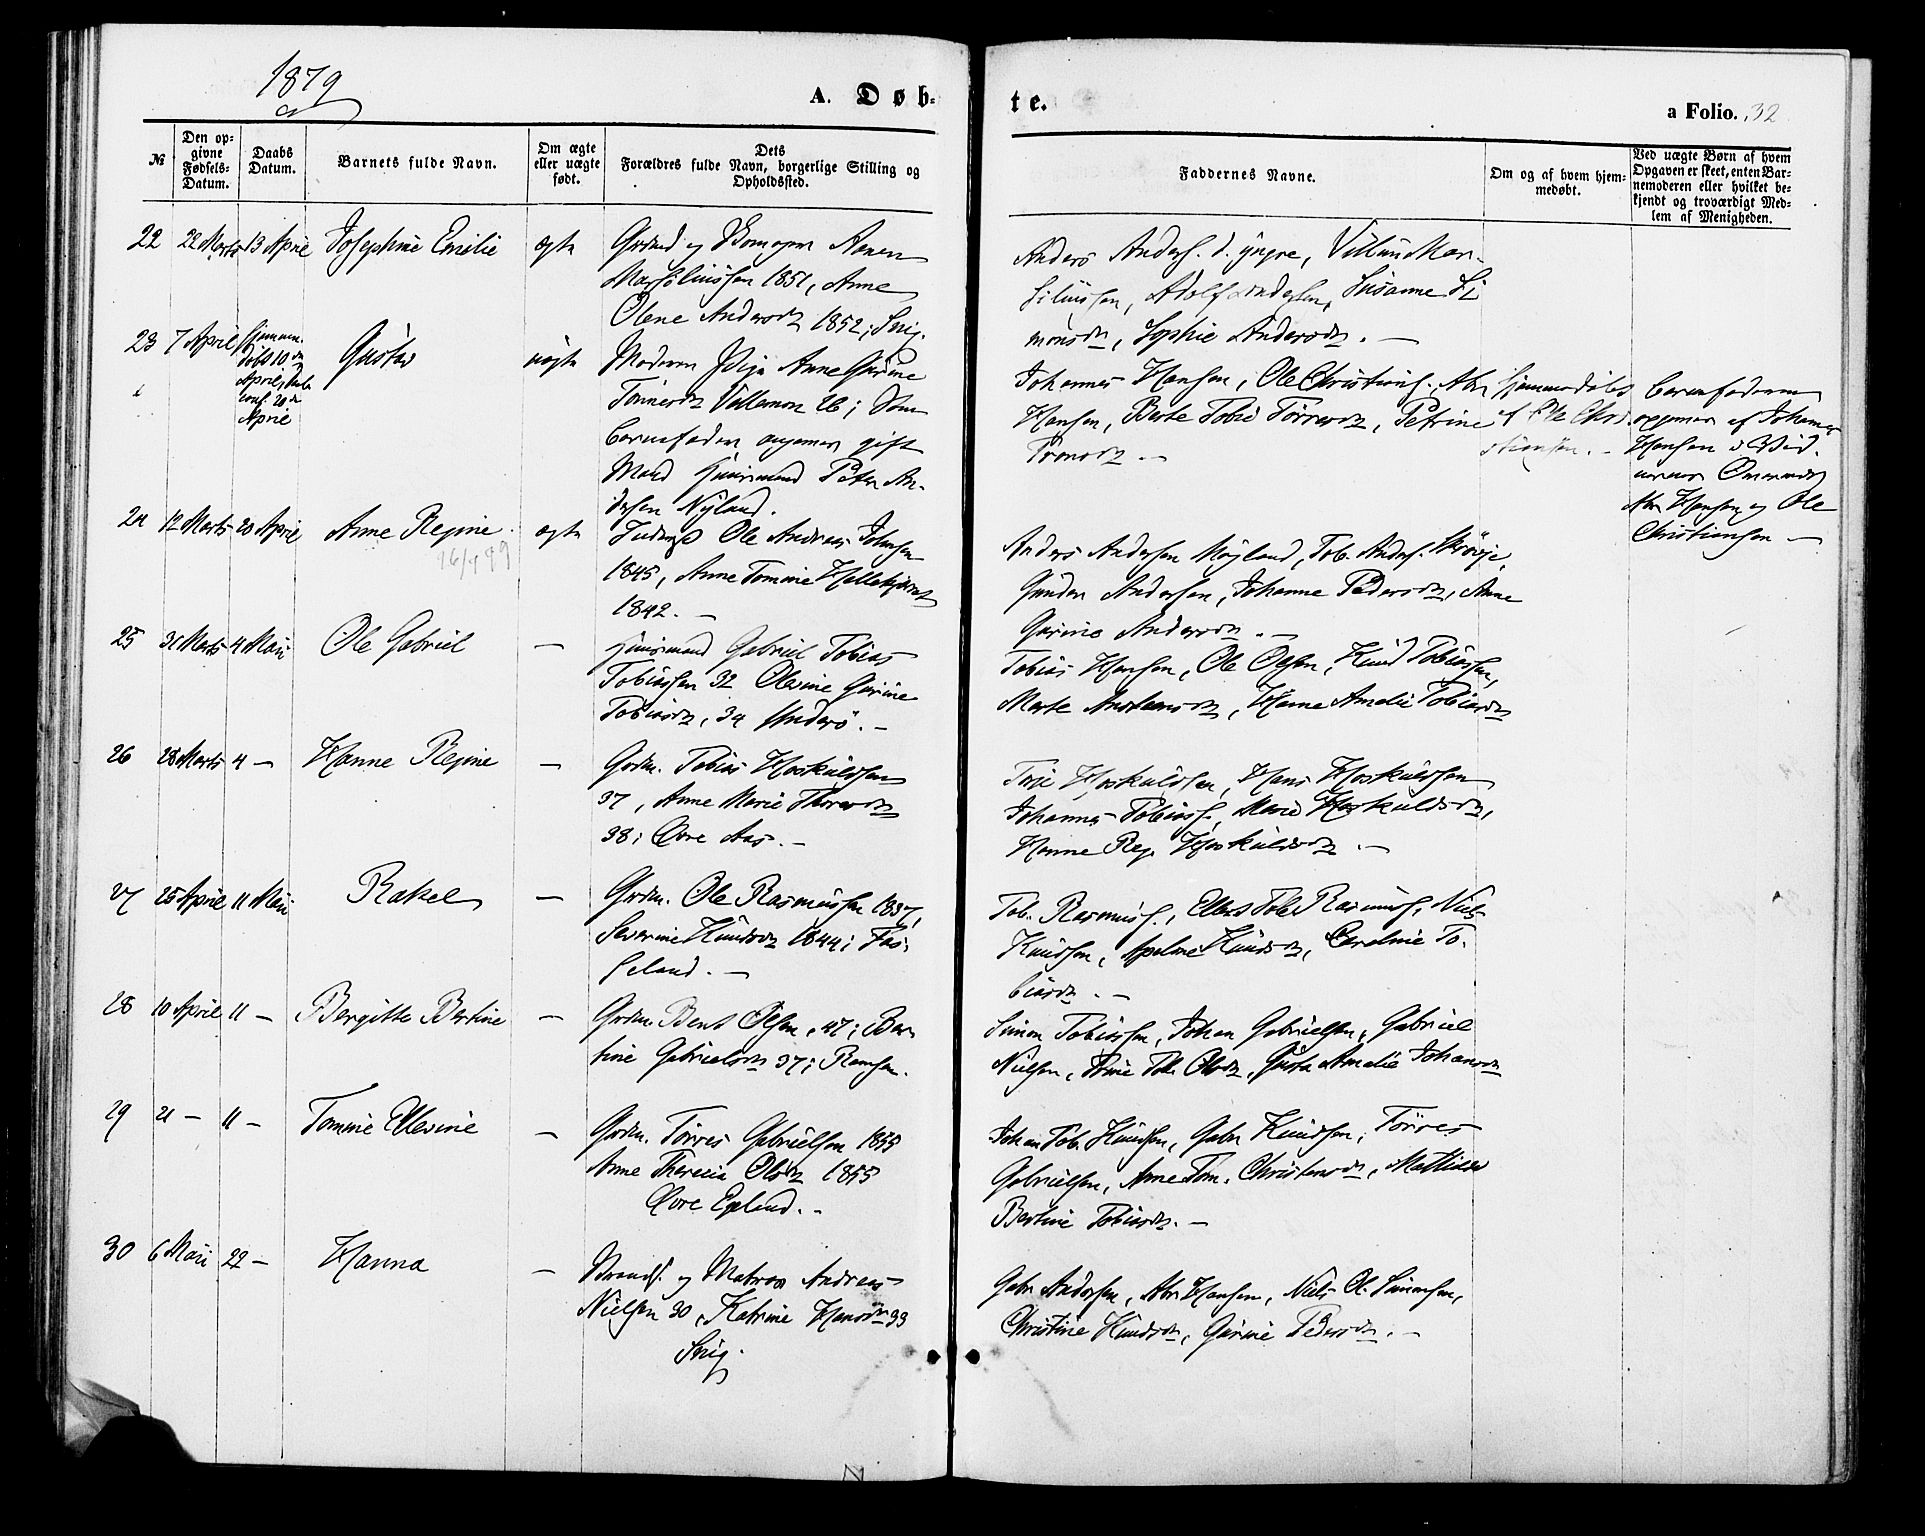 1879
A. Døb-
te.
a Folio. 32
№
Den op-
givne
Fødsels-
Datum.
Daabs
Datum.
Barnets fulde Navn.
Om ægte
eller uægte
født.
Dets
Forældres fulde Navn, borgerlige Stilling og
Opholdssted.
Faddernes Navne.
Om og af hvem hjem-
medøbt.
Ved uægte Børn af hvem
Opgaven er skeet, enten Bar-
nemoderen eller hvilket be-
kjendt og troværdigt Med-
lem af Menigheden.
22 22 Marts 13 April Josephine Emilie ægte
1851, Anne
Olene Andersdt 1852;
Anders Anders. d. yngre,
Adolf Andersen, Susanne Si
monsdt, Sophie Andersdt. —
23 7 April
10
April,
conf. 20
April
Gustav
uægte
Moderen Pige Anne Gurine
26; Som
Barnefader angiver gift
Mand Huusmand Peter An-
dersen Nyland.
Johannes Hansen, Ole Christians. Abr
Hansen, Berte Tobie Petrine
hjemmedøbt
af Ole Chri
stiansen. —
Barnefaderen
opgiven af Johannes
Hansen
Abr Hansen og Ole
Christiansen —
24 12 Marts 20 April Anne Regine ægte
Ole Andreas Johnsen
1845, Anne Tomine
1842. —
Anders Andersen Høyland, Tob. Anders.
Gunder Andersen, Johanne Pedersdt, Anne
Gurine Andersdt. —
25 31 Marts 4 Mai Ole Gabriel —
Huusmand Gabriel Tobias
Tobiassen 32 Olevine Gurine
Tobiasdt, 34 Underö. —
Tobias Hansen, Ole Olsen, Knud Tobiassen,
Marte Hanne Amalie Tobiasdt
26 28 Marts 4 — Hanne Regine —
Grdm. Tobias Hoskuldsen
37, Anne Marie
38; Øvre Aas. —
Terje Hoskuldsen, Hans Hoskuldsen
Johannes Tobias., Marie Hoskuldsdt,
Hanne Reg. Hoskuldsdt. —
27 25 April 11 Mai Rakel —
Grdm. Ole Rasmussen 1837,
Severine Knudsdt 1844; Fas-
seland. —
Tob. Rasmuss., Rasmuss, Niels
Knudsen, Knudsdt, Caroline To-
biasdt. —
28 10 April 11 — Bergitte Bertine —
Grdm. Bent Olsen, 47; Ber-
tine Gabrielsdt 37; Ramsen.
Simon Tobiassen, Johan Gabrielsen, Gabriel
Nielsen, Olsdt, Gusta Amalie Johansdt
29 21 — 11 — Tomine Ellevine —
Grdm. Törres Gabrielsen 1855
Anne Theresia Olsdt 1855
Øvre Egeland. —
Johan Tob. Knudsen, Gabr Knudsen, Törres
Gabrielsen, Anne Tom. Christensdt, Mathilde
Bertine Tobiasdt. —
30 6 Mai 22 — Hanna —
og Matros Andreas
Nielsen 30, Katrine Hansdt 33
Gabr Andersen, Abr Hansen, Niels Ol. Simonsen,
Christine Knudsdt, Gurine Pedersdt. —